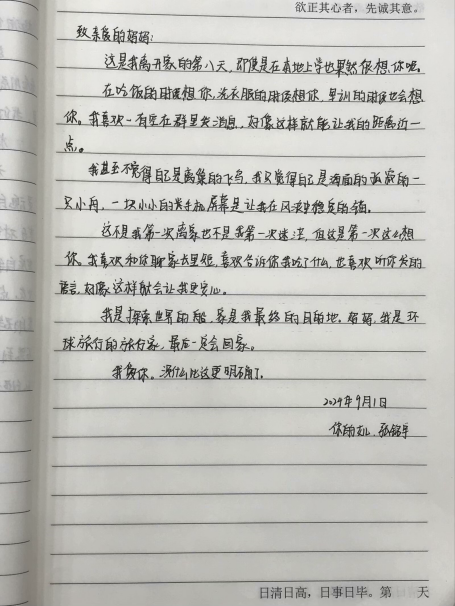 欲正其心者,先诚其意。
致亲爱的妈妈:
这是我离开家的第八天,即便是在本地上学也果然很想你呢。
在吃饭的时候想你,洗衣服的时候想你,军训的时候也会想
你。我喜欢一有空在群里发消息,好像这样就能让我的距离近一
点。
我甚至不觉得自己是离巢的飞鸟,我只觉得自己是海面的孤寂的一
只小舟,一块小小的手机屏幕是让我在风浪里稳定的锚。
这不是我第一次离家也不是我第一次迷茫,但这是第一次这么想
你。我喜欢和你聊家长里短,喜欢告诉你我吃了什么,也喜欢听你发的
语音,好像这样就会让我更安心。
我是探索世界的船,家是我最终的目的地。妈妈,我是环
球旅行的旅行家,最后一定会回家。
我爱你。没什么比这更明确了。
2024年9月1日
你的女儿
日清日高,日事日毕。第 天